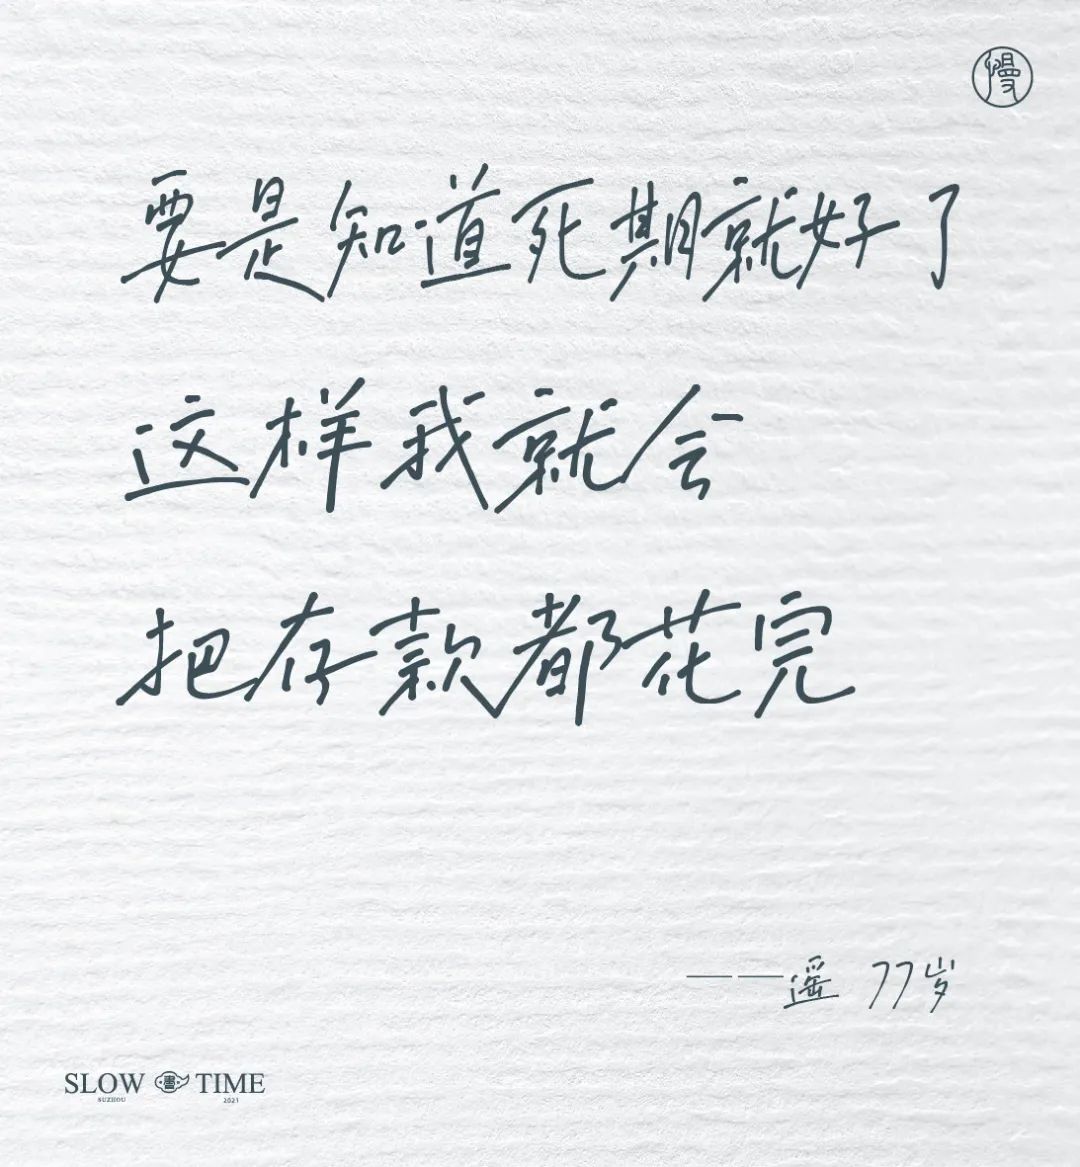 慢
要是知道死期就好了
这样我就会
把存款都花完
——遥 77岁
SLOW TIME
SUZHOU 2021